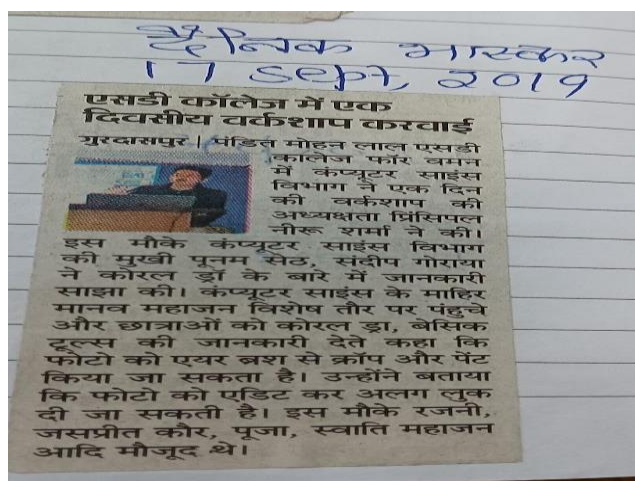 दैनिक भास्कर
17 Sept, 2019
एसडी कॉलेज में एक
दिवसीय वर्कशाप करवाई
गुरदासपुर | पंडित मोहन लाल एसडी
कालेज फॉर वूमन
में कंप्यूटर साइंस
विभाग ने एक दिन
की वर्कशाप की
अध्यक्षता प्रिंसिपल
नीरू शर्मा ने की।
इस मौके कंप्यूटर साइंस विभाग
की मुखी पूनम सेठ, संदीप गोराया
ने कोरल ड्रॉ के बारे में जानकारी
साझा की। कंप्यूटर साइंस के माहिर
मानव महाजन विशेष तौर पर पंहुचे
और छात्राओं को कोरल ड्रा, बेसिक
टूल्स की जानकारी देते कहा कि
फोटो को एयर ब्रश से क्रॉप और पेंट
किया जा सकता है। उन्होंने बताया
कि फोटो को एडिट कर अलग लुक
दी जा सकती है। इस मौके रजनी,
जसप्रीत कौर, पूजा, स्वाति महाजन
आदि मौजूद थे।